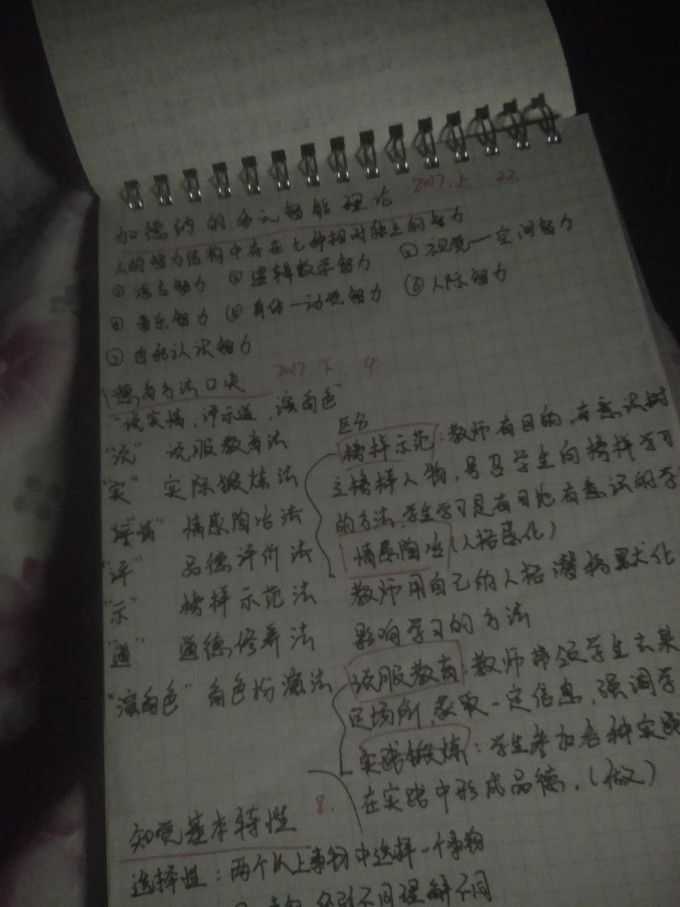 加德纳的多元智能理论 2017.上 22
人的智力结构中存在七种相对独立的智力
① 语言智力 ② 逻辑数学智力 ③ 视觉—空间智力
④ 音乐智力 ⑤ 身体—动觉智力 ⑥ 人际智力
⑦ 自我认识智力
德育方法口诀 2017.下 4
"说实情，评示道，演角色"
"说" 说服教育法
"实" 实际锻炼法
情感陶冶法
"评" 品德评价法
"示" 榜样示范法
"道" 道德修养法
"演角色" 角色扮演法
区分
榜样示范：教师有目的、有意识树
立榜样人物，号召学生向榜样学习
的方法，学生学习是有目的有意识的学
情感陶冶（人格感化）
教师用自己的人格潜移默化
影响学习的方法
说服教育：教师带领学生去某
定场所，获取一定信息，强调学
实践锻炼：学生参加各种实践
在实践中形成品德.（做）
知觉基本特性 8.
选择性：两个以上事物中选择一个事物
不同理解不同